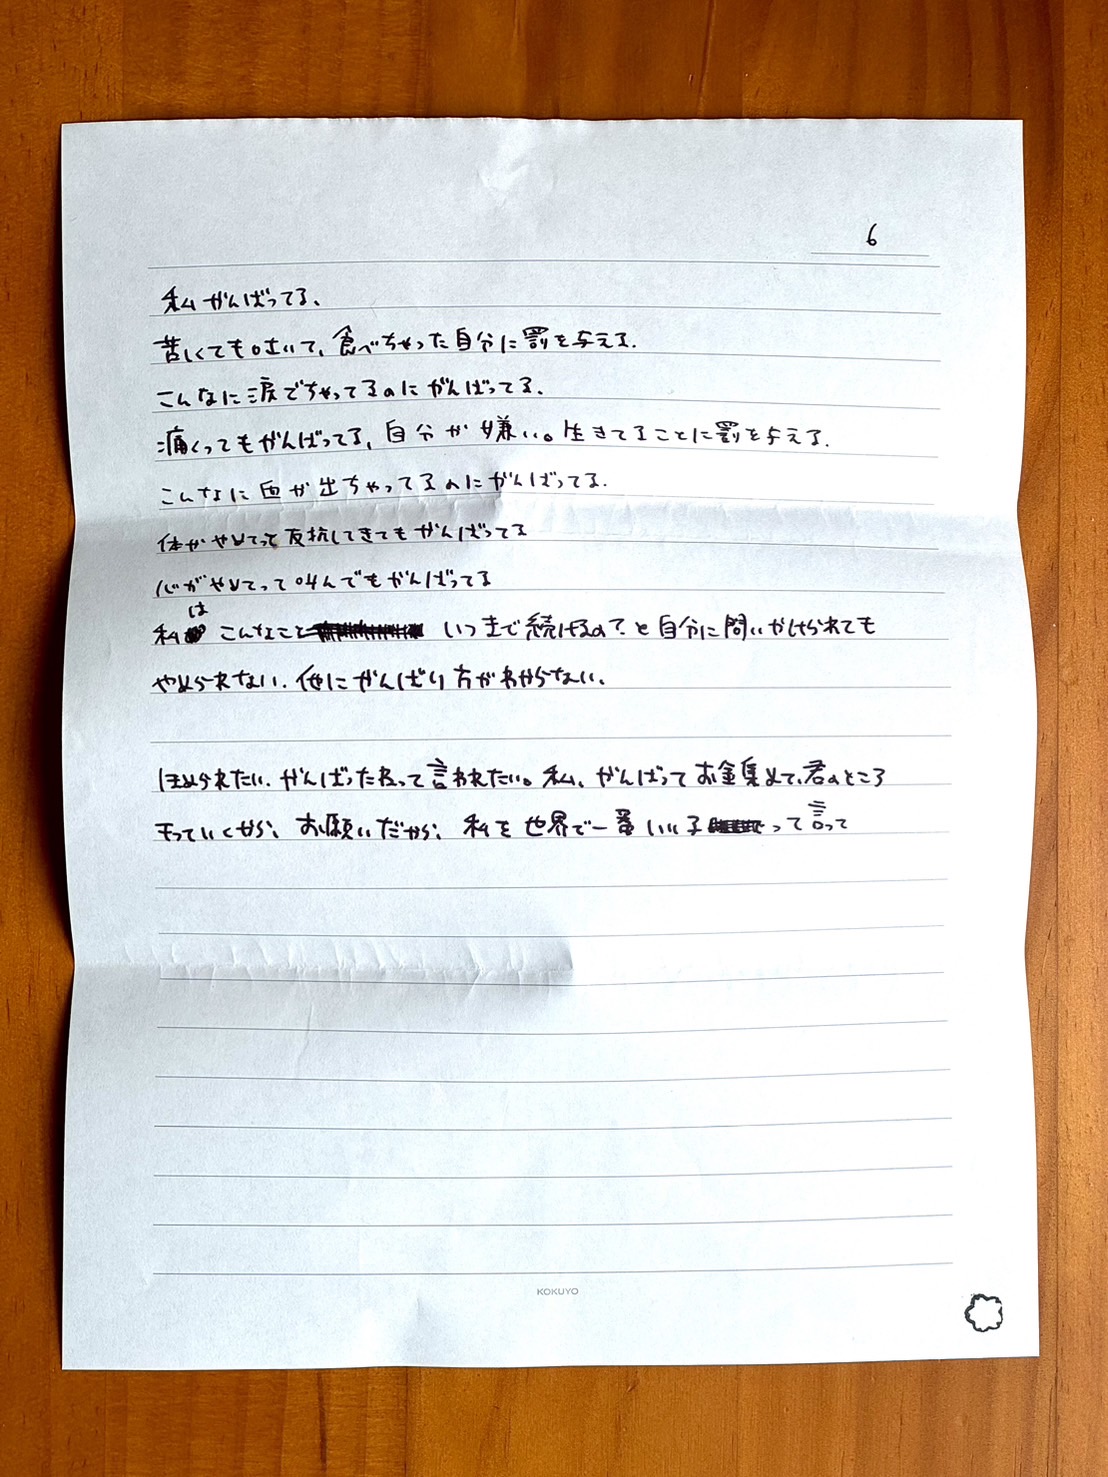 6
私がんばってる、
苦しくても吐いて、食べちゃった自分に罰を与える.
こんなに涙でちゃってるのにがんばってる、
痛くってもがんばってる、自分が嫌い。生きてることに罰を与える.
こんなに血が出ちゃってるのにがんばってる.
体がやめてって反抗してきてもがんばってる
心がやめてって叫んでもがんばってる
私は こんなこと いつまで続けるの?と自分に問いかけられても
やめられない. 他にがんばり方がわからない、
ほめられたい. がんばったねって言われたい。私、がんばってお金集めて、君のところ
もっていくから、お願いだから、私を世界で一番いい子って言って
KOKUYO